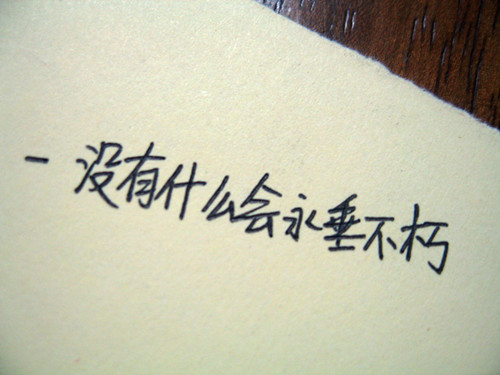 - 没有什么会永垂不朽